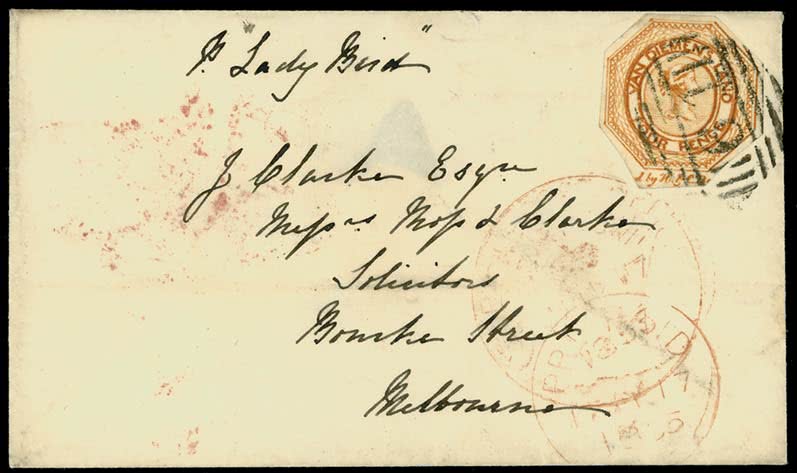 P. Lady Bird"
VAN DIEMENS LAND
FOUR PENCE
J Clarke Esqre
Messrs Moss & Clarke
Solicitors
Bourke Street
Melbourne
PAID